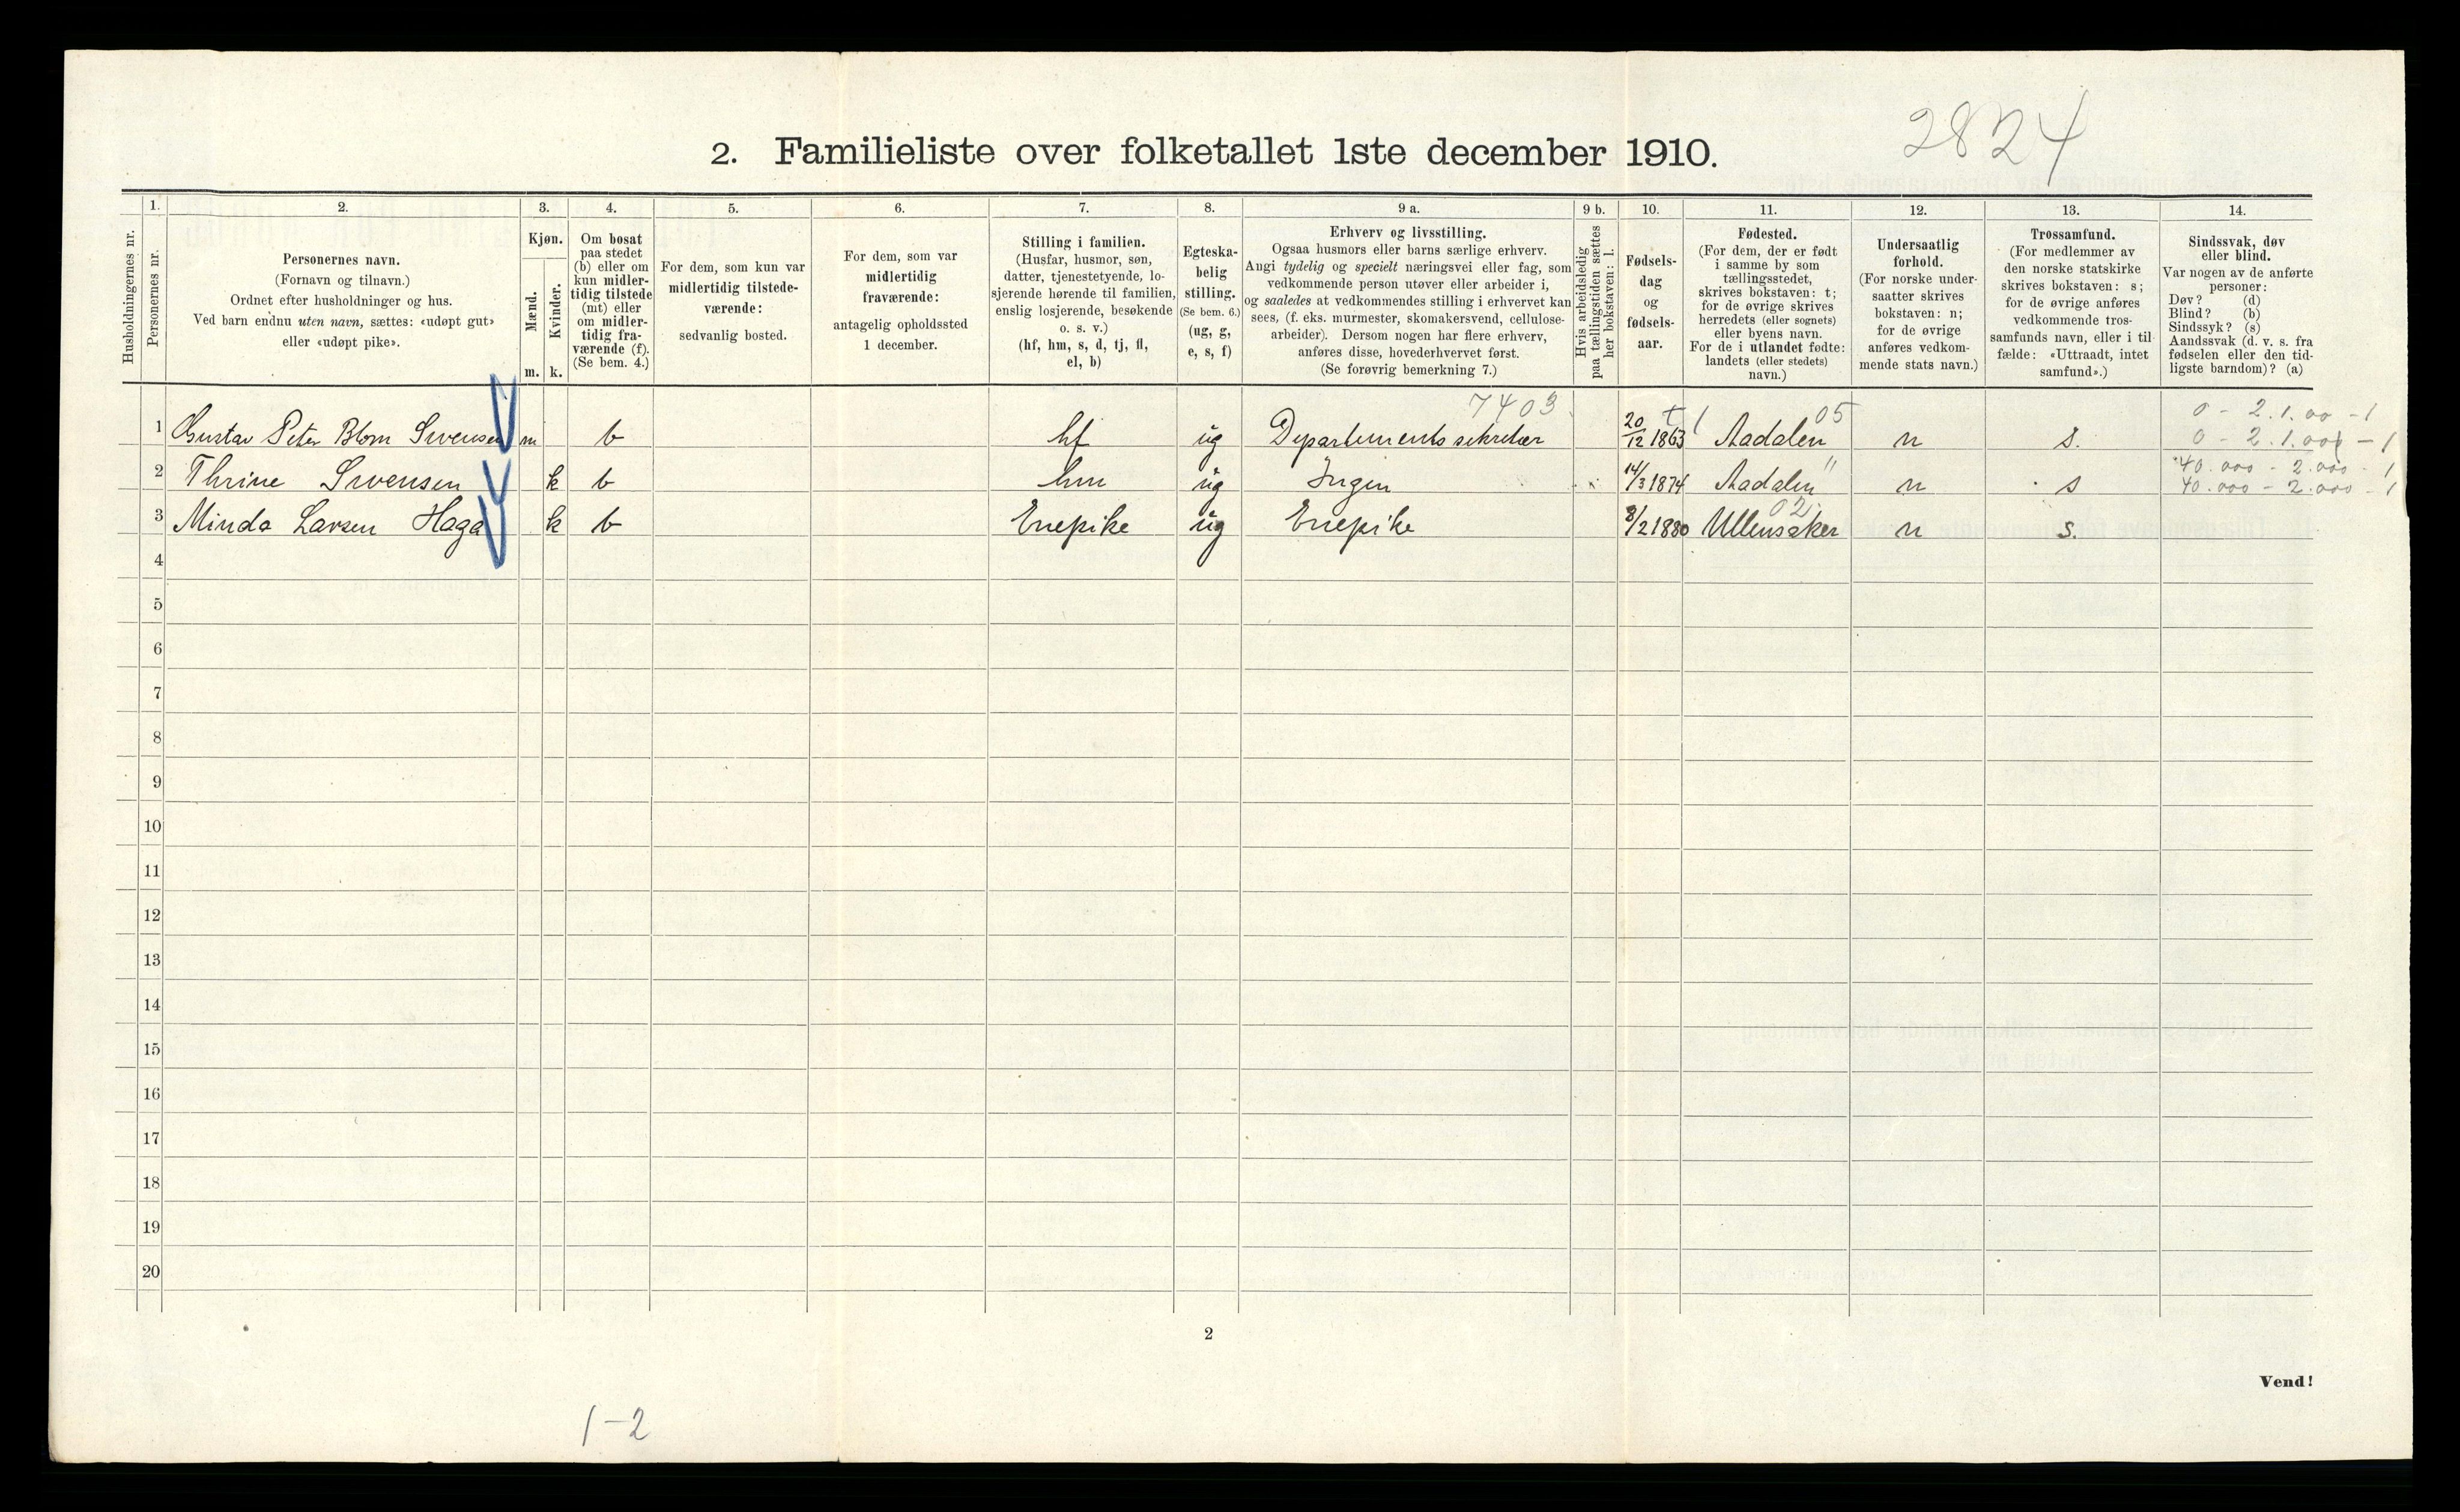 2824
2. Familieliste over folketallet 1ste december 1910.
Husholdningernes nr.
1.
Personernes nr.
2.
Personernes navn.
(Fornavn og tilnavn.)
Ordnet efter husholdninger og hus.
Ved barn endnu uten navn, sættes: «udøpt gut»
eller «udøpt pike».
3.
Kjøn.
Mænd.
Kvinder.
m. k.
4.
Om bosat
paa stedet
(b) eller om
kun midler-
tidig tilstede
(mt) eller
om midler-
tidig fra-
værende (f).
(Se bem. 4.)
5.
For dem, som kun var
midlertidig tilstede-
værende:
sedvanlig bosted.
6.
For dem, som var
midlertidig
fraværende:
antagelig opholdssted
1 december.
7.
Stilling i familien.
(Husfar, husmor, søn,
datter, tjenestetyende, lo-
sjerende hørende til familien,
enslig losjerende, besøkende
o. s. v.)
(hf, hm, s, d, tj, fl,
el, b)
8.
Egteska-
belig
stilling.
(Se bem. 6.)
(ug, g,
e, s, f)
9 a.
Erhverv og livsstilling.
Ogsaa husmors eller barns særlige erhverv.
Angi tydelig og specielt næringsvei eller fag, som
vedkommende person utøver eller arbeider i,
og saaledes at vedkommendes stilling i erhvervet kan
sees, (f. eks. murmester, skomakersvend, cellulose-
arbeider). Dersom nogen har flere erhverv,
anføres disse, hovederhvervet først.
(Se forøvrig bemerkning 7.)
9 b.
Hvis arbeidsledig
paa tællingstiden sættes
her bokstaven: l.
10.
Fødsels-
dag
og
fødsels-
aar.
11.
Fødested.
(For dem, der er født
i samme by som
tællingsstedet,
skrives bokstaven: t;
for de øvrige skrives
herredets (eller sognets)
eller byens navn.
For de i utlandet fødte:
landets (eller stedets)
navn.)
12.
Undersaatlig
forhold.
(For norske under-
saatter skrives
bokstaven: n;
for de øvrige
anføres vedkom-
mende stats navn.)
13.
Trossamfund.
(For medlemmer av
den norske statskirke
skrives bokstaven: s;
for de øvrige anføres
vedkommende tros-
samfunds navn, eller i til-
fælde: «Uttraadt, intet
samfund».)
14.
Sindssvak, døv
eller blind.
Var nogen av de anførte
personer:
Døv? (d)
Blind? (b)
Sindssyk? (s)
Aandssvak (d. v. s. fra
fødselen eller den tid-
ligste barndom)? (a)
7403 t 05 0 - 2.1.00 - 1
1 Gustav Peter Blom Svensen m b hf ug Departementssekretær 20/12 1863 Aadalen n s. 0 - 2.1.00 - 1
" 40.000 - 2.000 - 1
2 Thrine Svensen k b hm ug Ingen 14/3 1874 Aadalen n s 40.000 - 2.000 - 1
02
3 Minda Larsen Haga k b Enepike ug Enepike 8/2 1880 Ullensaker n s.
4
5
6
7
8
9
10
11
12
13
14
15
16
17
18
19
20
2
Vend!
1-2